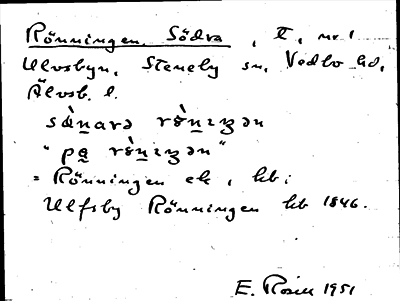 Rönningen, Södra, T, nr 1
Ulvsbyn, Steneby sn, Vedbo hd,
Älvsb. l.
sɑ̀narə rö̀nɪŋən
"pa rö̀nɪŋən"
= Rönningen ek, hb;
Ulfsby Rönningen hb 1846.
E. 1951